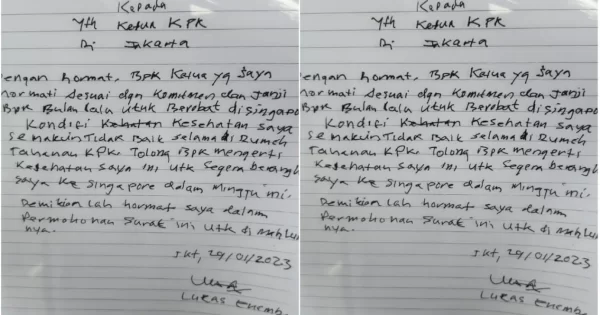 Kepada
Yth Ketua KPK
Di Jakarta
engan hormat, Bpk Ketua yg saya
hormati sesuai dgn komitmen dan janji
Bpk Bulan lalu utuk Berobat disingapo
Kondisi Kehatan Kesehatan saya
semakuin Tidak Baik selama di Rumah
Tahanan KPK. Tolong Bpk mengerti
Kesehatan saya ini utk segera berangk
saya ke Singapore dalam minggu ini.
Demikian lah hormat saya dalam
Permohonan surat ini utk di
nya.
Jkt, 29/01/2023
Lukas Enembe
Kepada
Yth Ketua KPK
Di Jakarta
engan hormat, Bpk Ketua yg saya
hormati sesuai dgn komitmen dan janji
Bpk Bulan lalu utuk Berobat disingapo
Kondisi Kehatan Kesehatan saya
semakuin Tidak Baik selama di Rumah
Tahanan KPK. Tolong Bpk mengerti
Kesehatan saya ini utk segera berangk
saya ke Singapore dalam minggu ini.
Demikian lah hormat saya dalam
Permohonan surat ini utk di
nya.
Jkt, 29/01/2023
Lukas Enembe